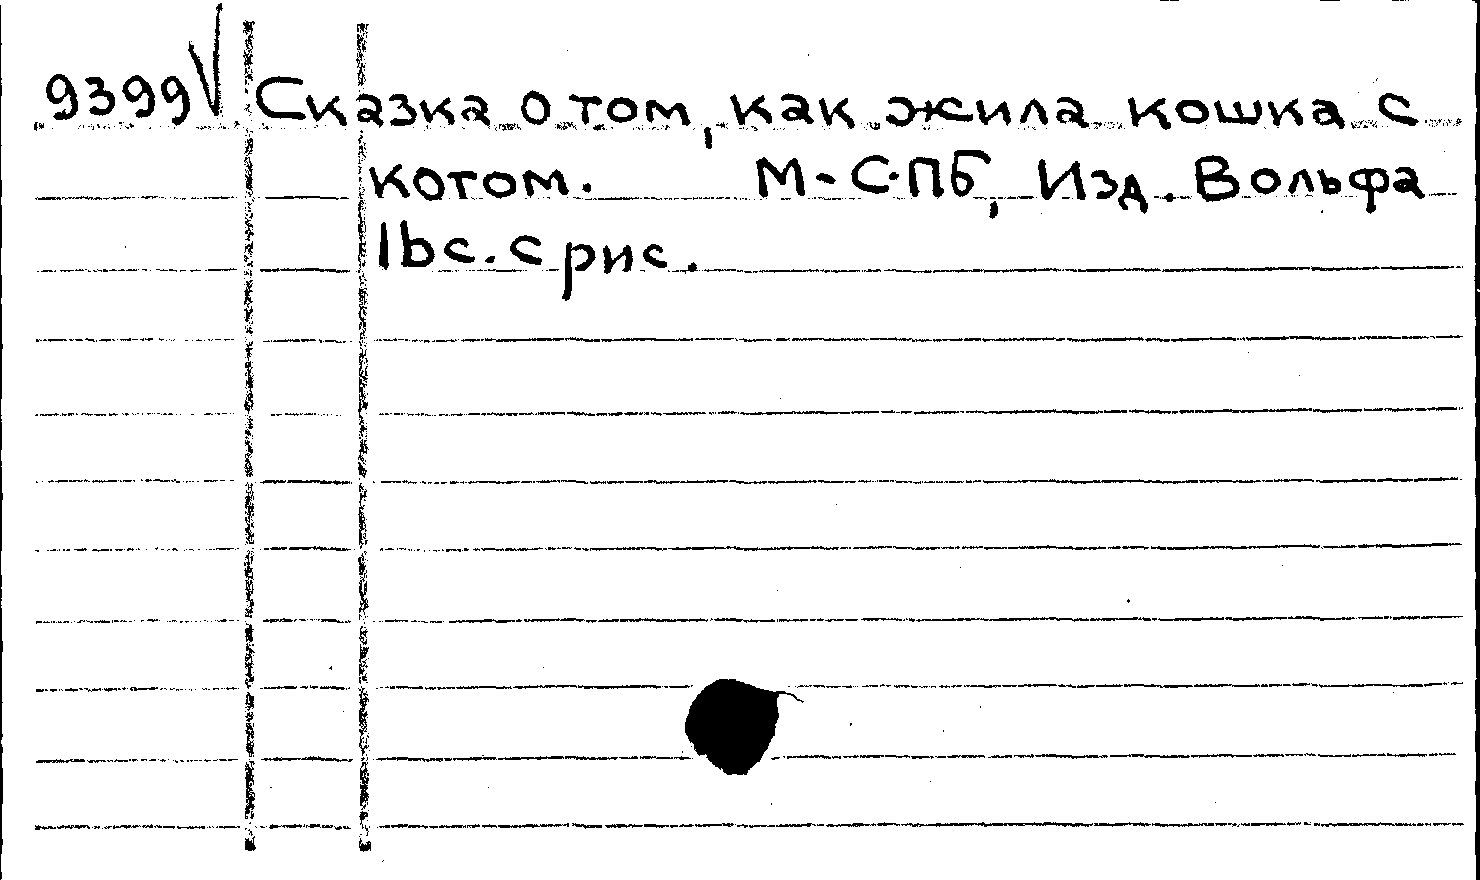 9399 √ Сказка о том, как жила кошка с
котом. М-С.ПБ, Изд. Вольфа
16с. с рис.